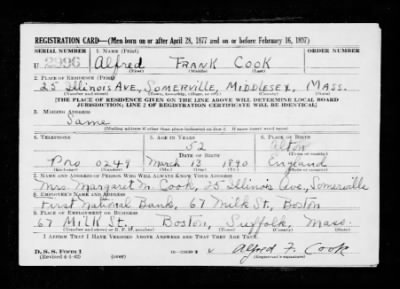 REGISTRATION CARD—(Men born on or after April 28, 1877 and on or before February 16, 1897)
SERIAL NUMBER 1. NAME (Print) ORDER NUMBER
U 2996 Alfred Frank Cook
(First) (Middle) (Last)
2. PLACE OF RESIDENCE (Print)
25 Illinois Ave, Somerville, Middlesex, Mass.
(Number and street) (Town, township, village, or city) (County) (State)
[THE PLACE OF RESIDENCE GIVEN ON THE LINE ABOVE WILL DETERMINE LOCAL BOARD
JURISDICTION; LINE 2 OF REGISTRATION CERTIFICATE WILL BE IDENTICAL]
3. MAILING ADDRESS
Same
(Mailing address if other than place indicated on line 2. If same insert word same)
4. TELEPHONE 5. AGE IN YEARS 6. PLACE OF BIRTH
52 Alton
DATE OF BIRTH
Pro 0249 March 13 1890 England
7. NAME AND ADDRESS OF PERSON WHO WILL ALWAYS KNOW YOUR ADDRESS
Mrs. Margaret M. Cook, 25 Illinois Ave, Somerville
8. EMPLOYER'S NAME AND ADDRESS
First National Bank, 67 Milk St., Boston
9. PLACE OF EMPLOYMENT OR BUSINESS
67 Milk St. Boston, Suffolk, Mass.
(Number and street or R. F. D. number) (Town) (County) (State)
I AFFIRM THAT I HAVE VERIFIED ABOVE ANSWERS AND THAT THEY ARE TRUE.
D. S. S. Form 1
(Revised 4-1-42) (over) Alfred F. Cook
(Registrant's signature)